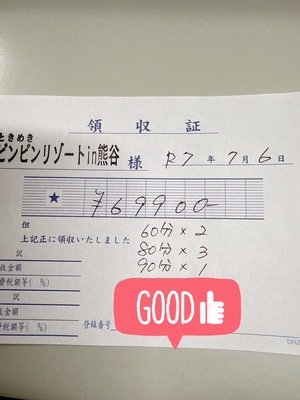 領収証
ときめき
ビンビンリゾートin熊谷 様 R7年7月6日
★ ¥69900-
但 60分×2
上記正に領収いたしました 80分×3
訳 90分×1
抜金額
費税額等( %)
訳
抜金額
税額等( %) 登録番号
GOOD